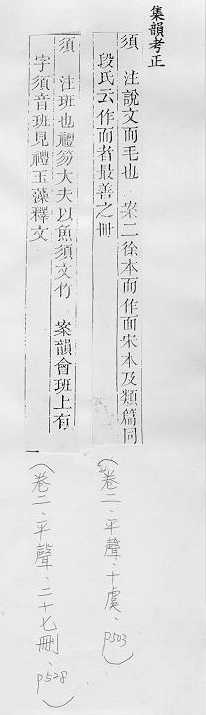 集韻考正
須 注說文而毛也 案二徐本而作面宋本及類篇同
段氏云作而者最善之冊
(卷二、平聲、十虞、p503)
須 注班也禮笏大夫以魚須文竹 案韻會班上有
字須音班見禮玉藻釋文
(卷二、平聲、二十七刪、p528)